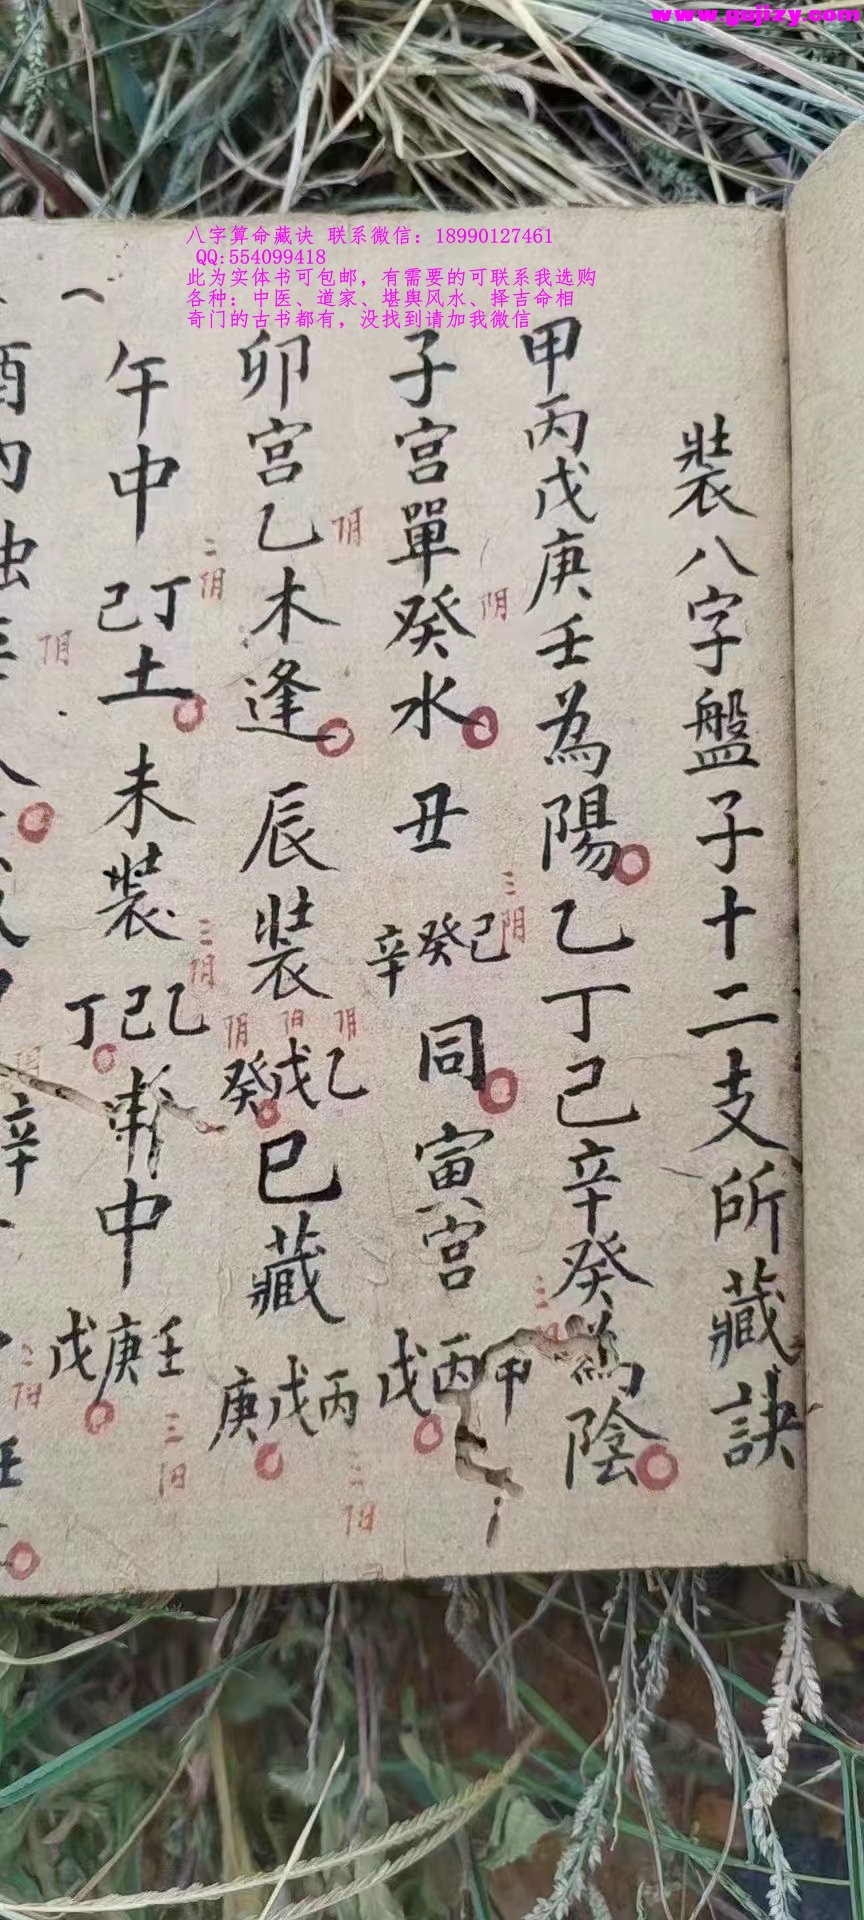 www.gujizy.com
八字算命藏诀 联系微信：18990127461
QQ:554099418
此为实体书可包邮，有需要的可联系我选购
各种：中医、道家、堪舆风水、择吉命相
奇门的古书都有，没找到请加我微信
裝八字盤子十二支所藏訣
甲丙戊庚壬為陽乙丁己辛癸為陰
子宮單癸水丑己癸辛同寅宮甲丙戊
阴
三阴
卯宮乙木逢辰裝乙戊癸巳藏丙戊庚
阴
阴
阳
阴
三阳
午中丁己土未裝乙己丁申中壬庚戊
二阴
三阴
三阳
酉内独辛
阴
辛
二阳
壬